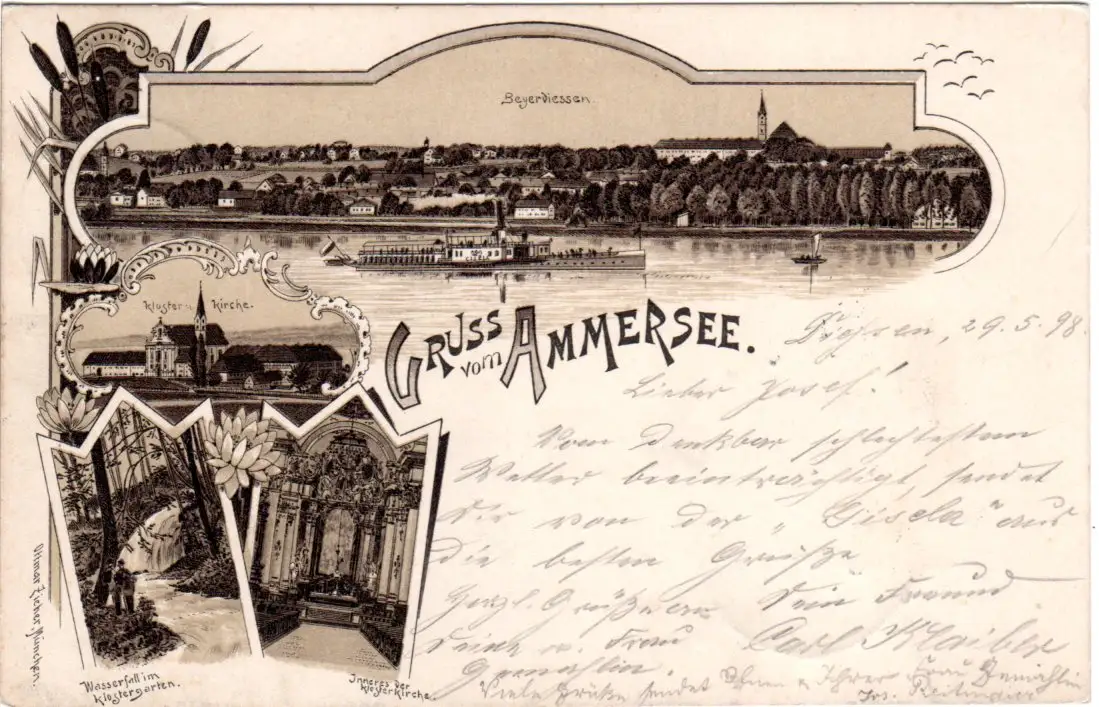 Beyerdiessen.
Kloster u. Kirche.
GRUSS vom AMMERSEE.
29.5.98.
Lieber Josef!
Vom denkbar schlechtesten
Wetter beeinträchtigt, sendet
Dir von der "Gisela" aus
die besten Grüße
Dein Freund
Carl Klaiber
herzl. Grüße an
Deine w. Frau
Gemahlin.
Viele Grüße sendet Ihnen & Ihrer Frau Gemahlin
Jos.
Wasserfall im
Klostergarten.
Inneres der
Klosterkirche.
Ottmar Zieher, München.